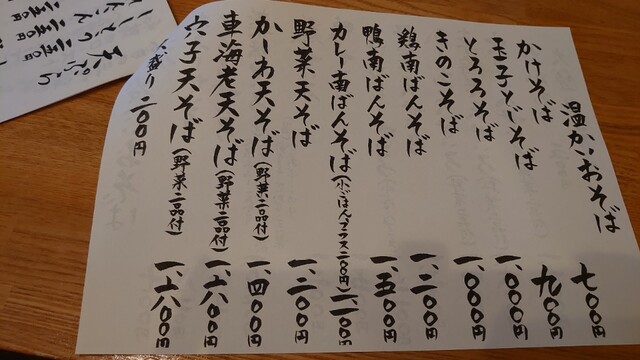 温かいおそば
かけそば 七〇〇円
玉子とじそば 九〇〇円
とろろそば 一、〇〇〇円
きのこそば 一、〇〇〇円
鶏南ばんそば 一、二〇〇円
鴨南ばんそば 一、五〇〇円
カレー南ばんそば(小ごはんプラス二〇〇円) 一、二〇〇円
野菜天そば 一、二〇〇円
かしわ天そば(野菜二品付) 一、四〇〇円
車海老天そば(野菜二品付) 一、六〇〇円
穴子天そば(野菜二品付) 一、六〇〇円
盛り 二〇〇円
天ぷら
ししとう 二五〇円
れんこん 二五〇円